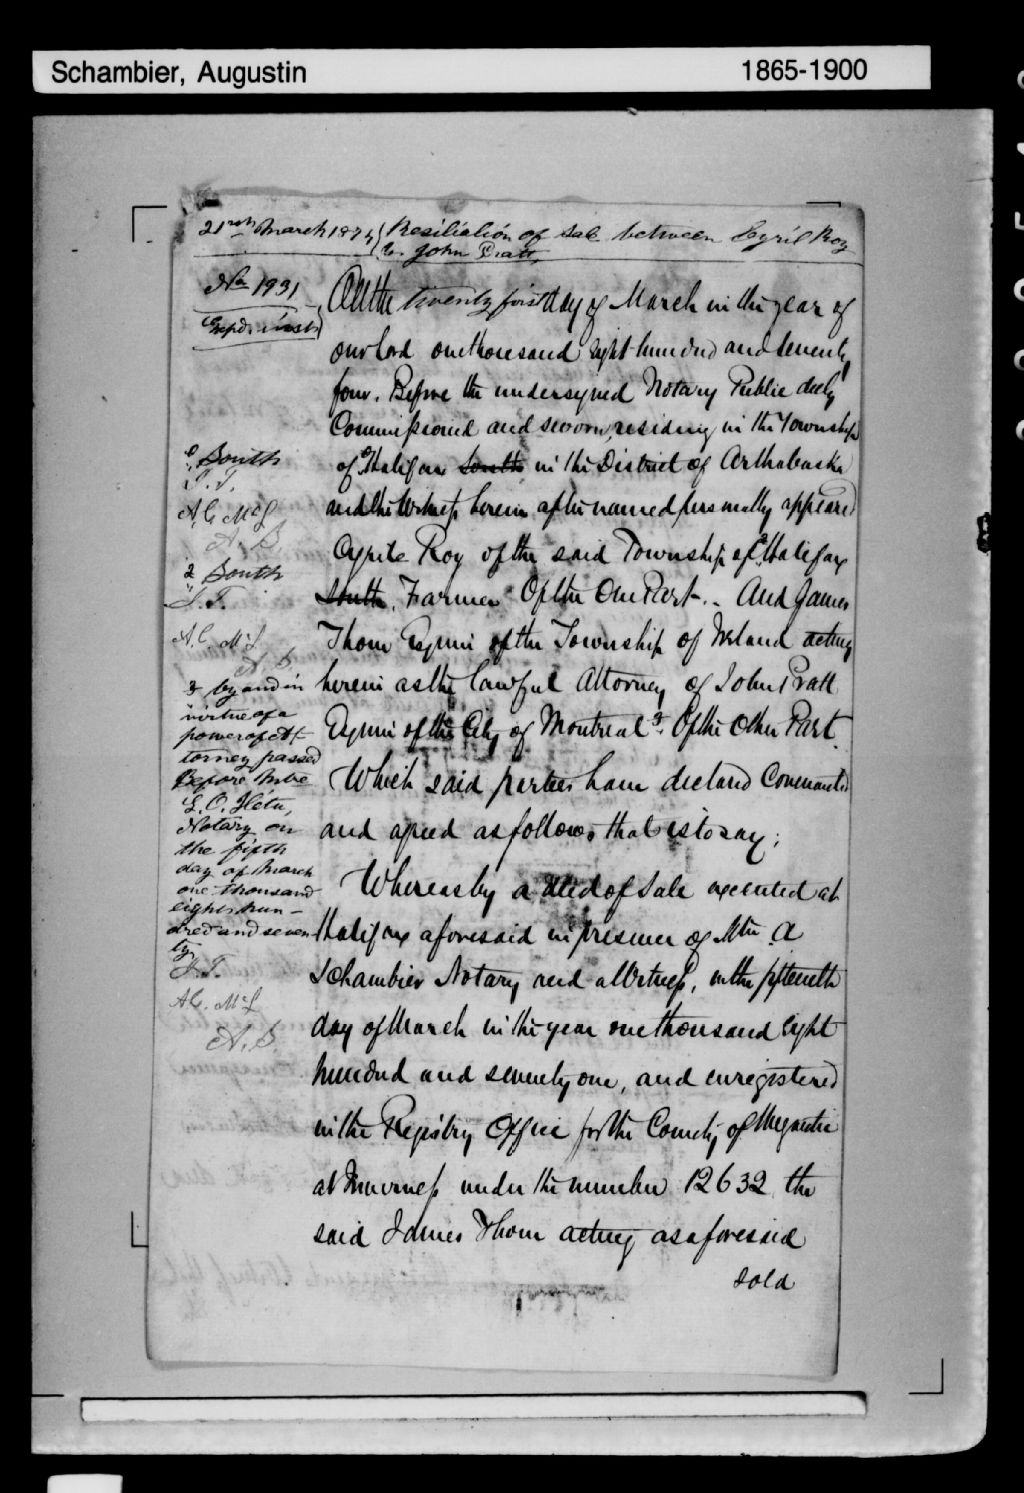 Schambier, Augustin 1865-1900
21rst March 1874 Resiliation of Sale between Cyril Roy
& John Pratt
No 1931
Expd. inst.
On the twenty first day of March in the year of
our Lord one thousand eight hundred and seventy
four. Before the undersigned Notary Public duly
Commissioned and sworn, residing in the Township
of Halifax South in the District of Arthabaska
and the Witness herein after named personally appeared
Cyrile Roy of the said Township of Halifax
South, Farmer Of the One Part.. And James
Thom Esquire of the Township of Ireland acting
herein as the lawful Attorney of John Pratt
Esquire of the City of Montreal 3 Of the Other Part
Which said parties have declared Covenanted
and agreed as follows that is to say;
Whereas by a deed of Sale executed at
Halifax aforesaid in presence of Mtre A
Schambier Notary and a Witness, on the fifteenth
day of March in the year one thousand eight
hundred and seventy one, and enregistered
in the Registry Office for the County of Megantic
at Inverness under the number 12632 the
said James Thom acting as aforesaid
sold
South
J.T.
A.C. McL
A. S.
2 South
J.T.
A.C. McL
A. S.
3 by and in
virtue of a
power of At-
torney passed
Before Mtre
L.O. Hétu,
Notary on
the fifth
day of March
one thousand
eight hun-
dred and seven-
ty.
J.T.
A.C. McL
A. S.